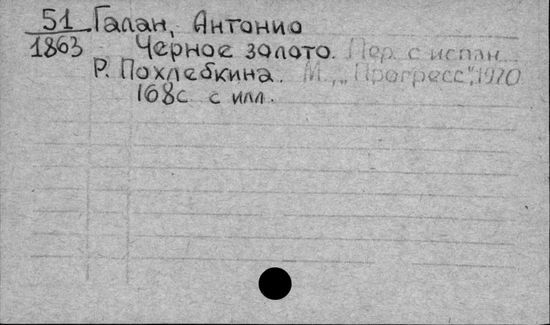 51 Галан, Антонио
1863 Черное золото. Пер. с испан
Р. Похлебкина. М., „Прогресс", 1970
168с с илл.